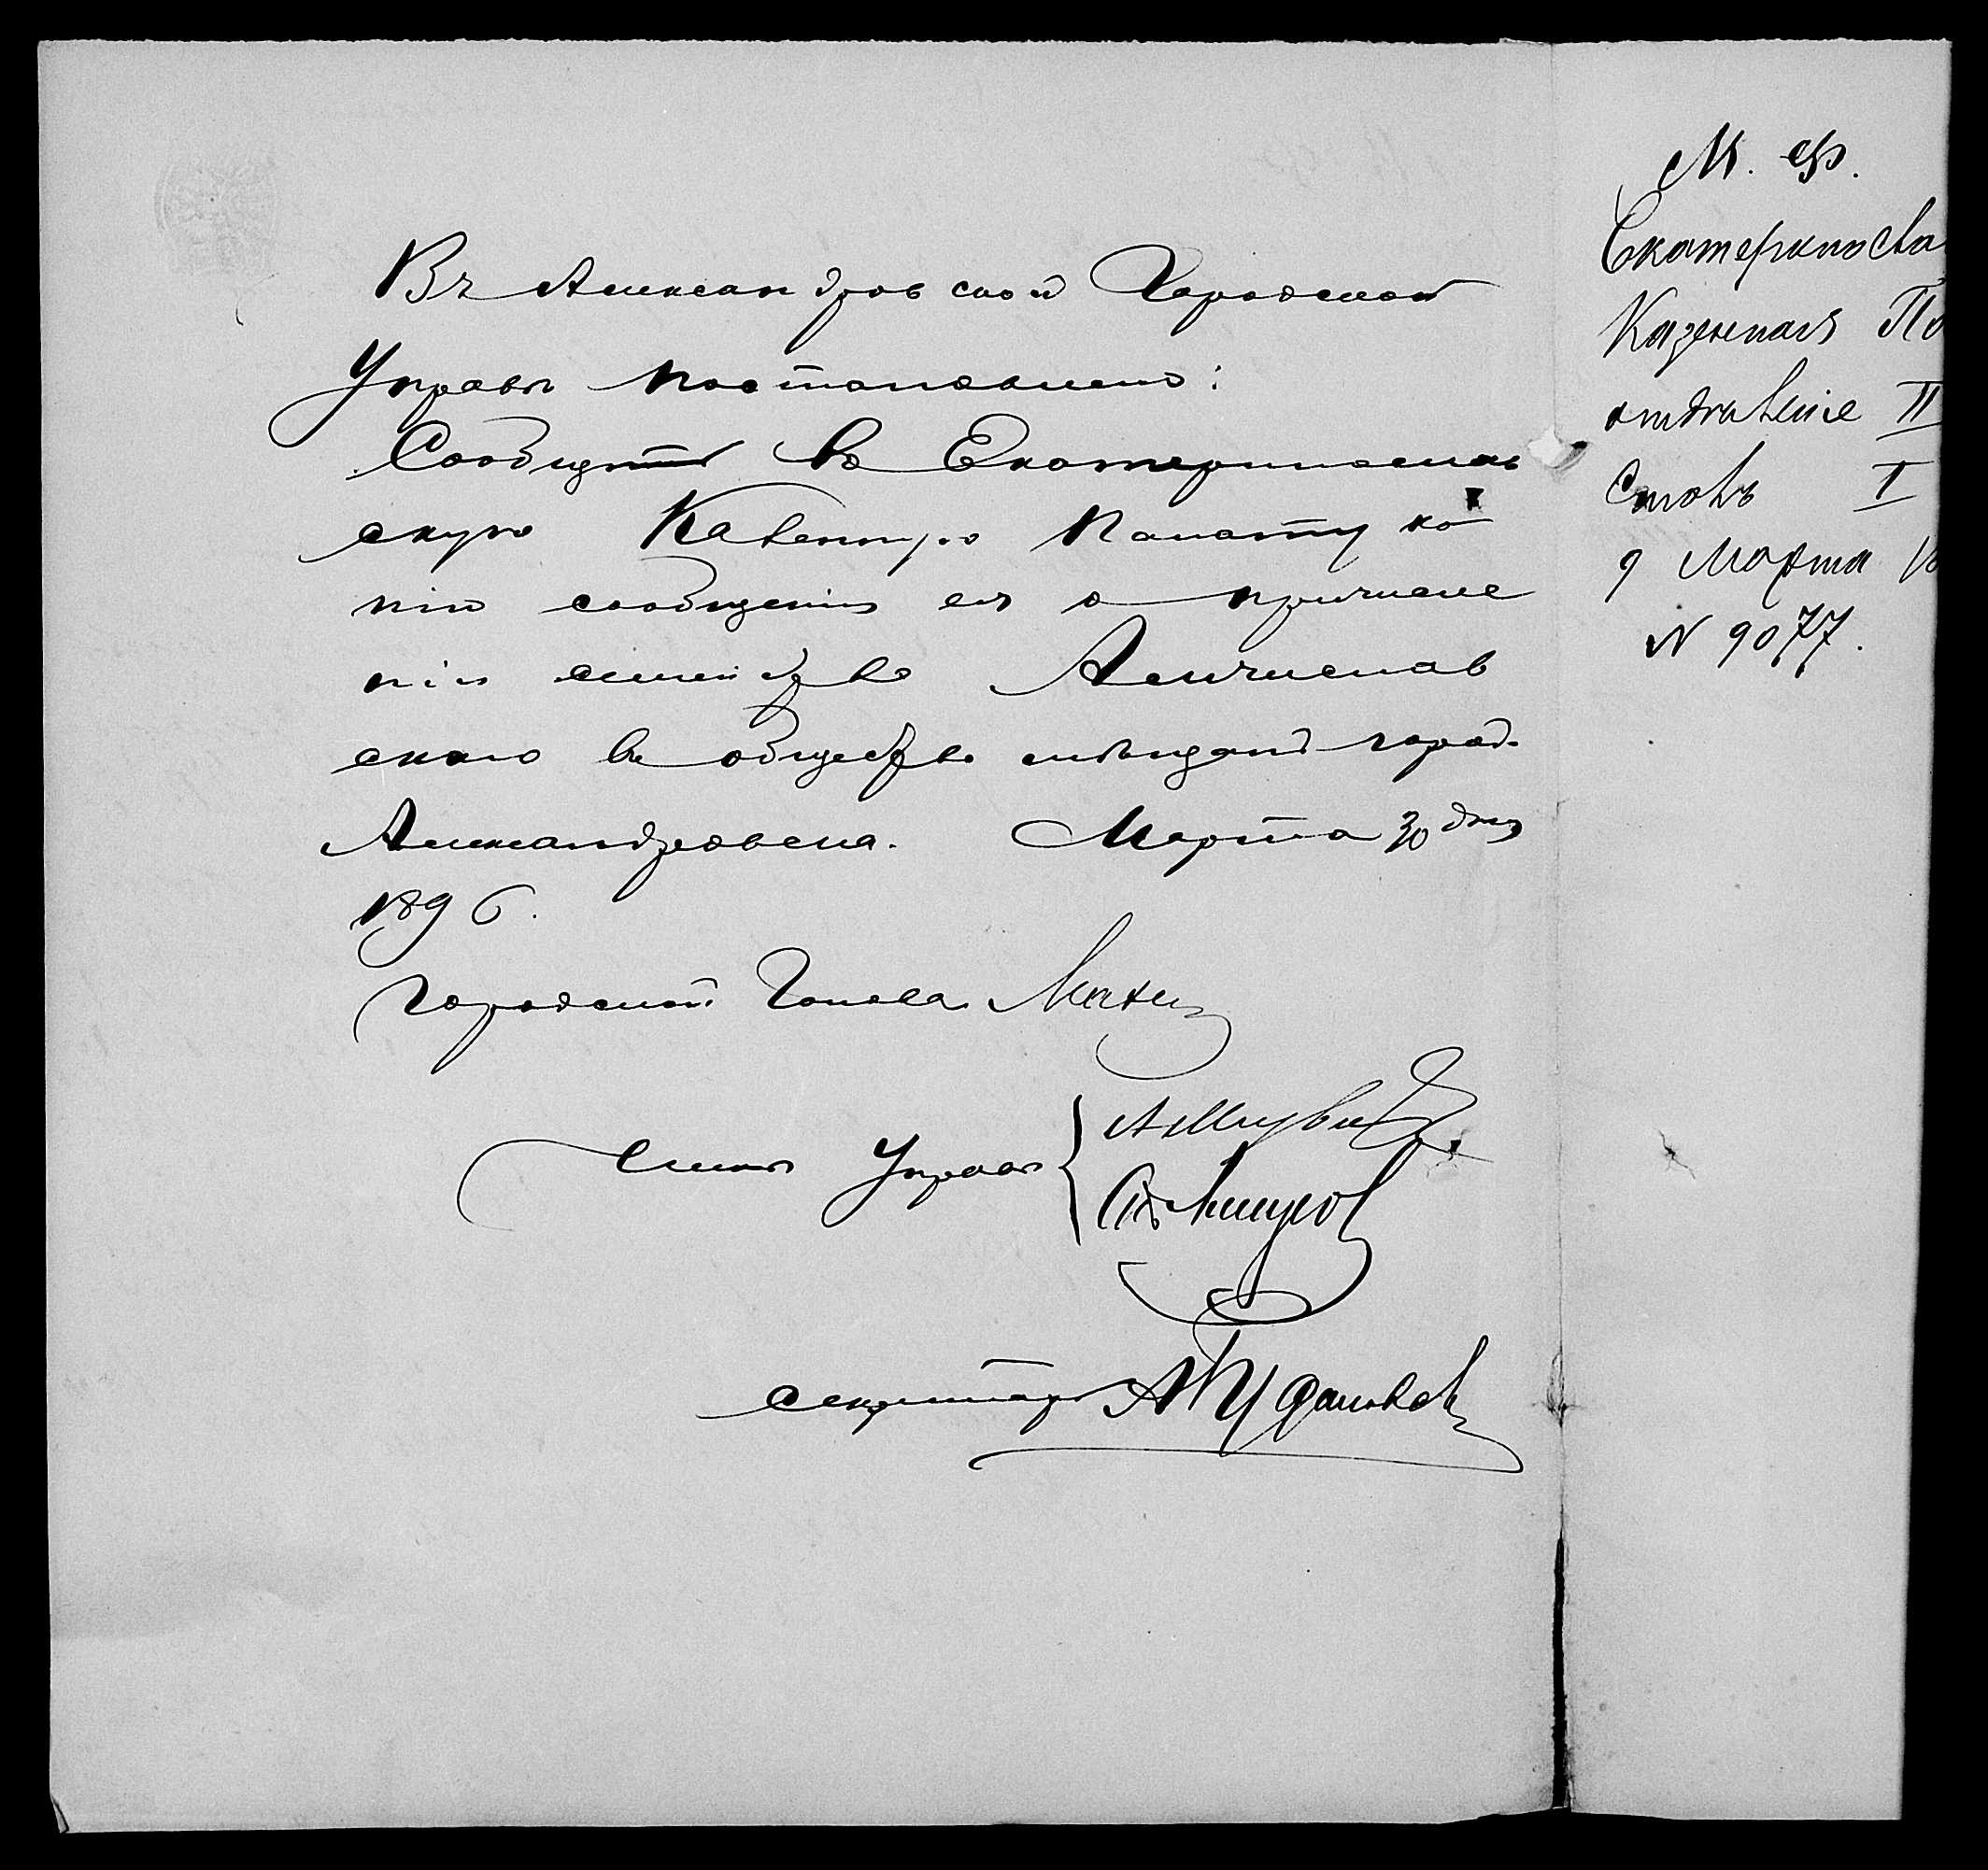 Въ Александровской Городской
Управѣ постановлено:
Сообщить въ Екатеринослав
скую Казенную Палату ко
пію сообщенія ея о причисле
ніи семейства
скаго въ общество мѣщанъ город.
Александровска. Марта 30 дня
1896.
Городской Голова
Члены Управы
Секретарь
М. Ф.
Екатериносла
Казенная Па
отдѣленіе II
Столъ I
9 Марта 18
N 9077.